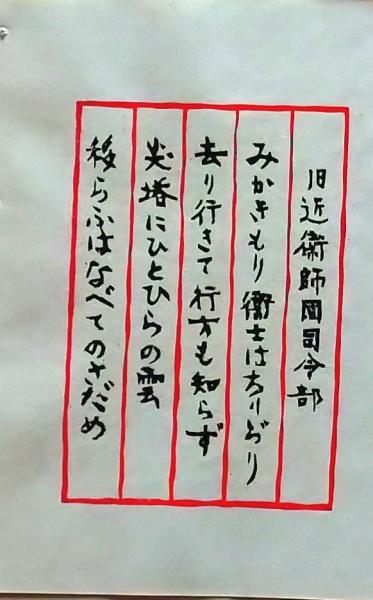 旧近衛師団司令部
みかきもり衛士はちりぢり
去り行きて行方も知らず
尖塔にひとひらの雲
移らふはなべてのさだめ